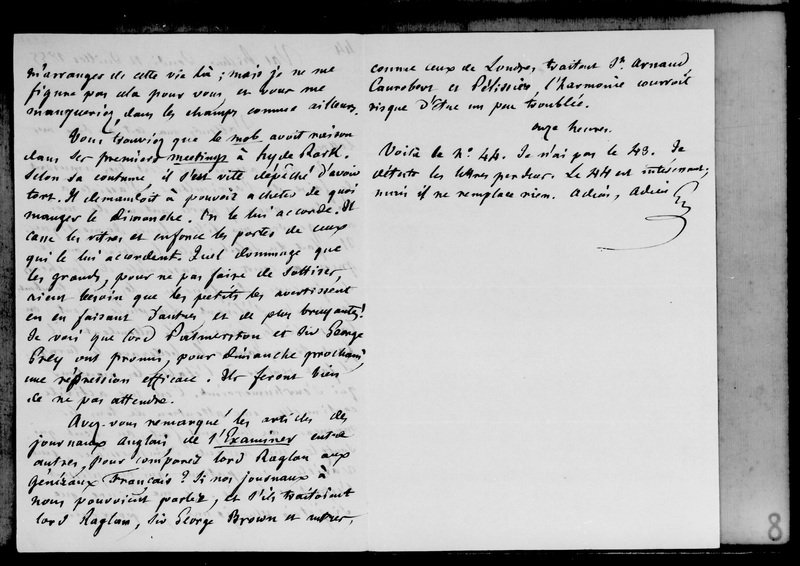 m'arranges de cette vie là ; mais je ne me
figure pas cela pour vous, et vous me
manqueriez, dans les champs comme ailleurs.
Vous trouviez que le mob avoit raison
dans ses premiers meetings à Hyde Park.
Selon sa coutume, il s'est vite dépêché d'avoir
tort. Il demandoit à pouvoir acheter de quoi
manger le Dimanche. On le lui accorde. Il
casse les vitres et enfonce les portes de ceux
qui le lui accordent. Quel dommage que
les grands, pour ne pas faire de sottises,
aient besoin que les petits les avertissent
en en faisant d'autres et de plus bruyantes !
Je vois que lord Palmerston et Sir George
Grey ont promis, pour Dimanche prochain,
une répression efficace. Ils feront bien
de ne pas attendre.
Avez-vous remarqué les articles des
journaux anglais de l'Examiner entre
autres, pour comparer lord Raglan aux
généraux Français ? Si nos journaux à
nous pouvoient parler, et s'ils traitoient
lord Raglan, Sir George Brown et autres,
comme ceux de Londres traitent St Arnaud,
Canrobert et Pélissier, l'harmonie courroit
risque d'être un peu troublée.
onze heures.
Voilà le No 44. Je n'ai pas le 43. Je
déteste les lettres perdues. Le 44 est intéressant ;
mais il ne remplace rien. Adieu, Adieu
8